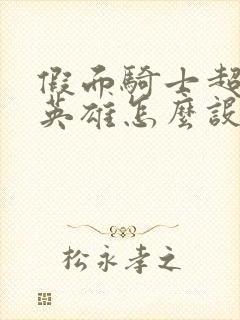 假而騎士超
英雄怎麼設
松永孝之